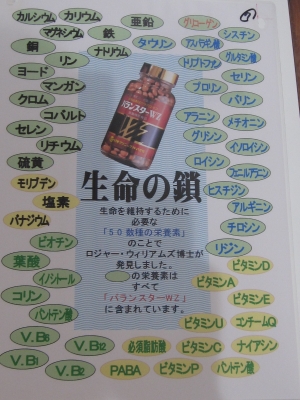 カルシウム カリウム
マグネシウム 鉄 亜鉛
銅 リン ナトリウム タウリン
ヨード
マンガン
クロム
コバルト
セレン
リチウム
硫黄
モリブデン
塩素
バナジウム
ビオチン
葉酸
イノシトール
コリン
パントテン酸
V.B6
V.B12
V.B1
V.B2
グリコーゲン
シスチン
アスパラギン酸
グルタミン酸
トリプトファン
セリン
プロリン
バリン
アラニン
メチオニン
グリシン
イソロイシン
ロイシン
フェニルアラニン
ヒスチジン
アルギニン
チロシン
リジン
ビタミンD
ビタミンA
ビタミンE
ビタミンU
コエンチームQ
必須脂肪酸
ビタミンC
ナイアシン
PABA
ビタミンP
パントテン酸
バランスターWZ
生命の鎖
生命を維持するために
必要な
「50数種の栄養素」
のことで
ロジャー・ウィリアムズ博士が
発見しました。
の栄養素は
すべて
「バランスターWZ」
に含まれています。